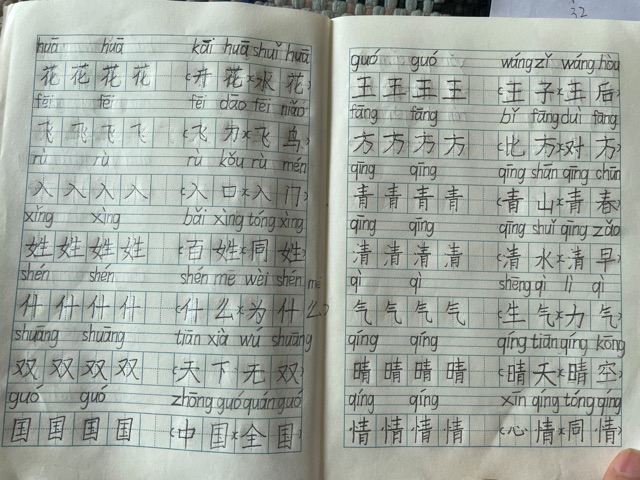 32
huā huā kāi huā shuǐ huā
花 花 花 花 (开 花)(水 花)
fēi fēi fēi dāo fēi niǎo
飞 飞 飞 飞 (飞 刀)(飞 鸟)
rù rù rù kǒu rù mén
入 入 入 入 (入 口)(入 门)
xìng xìng bǎi xìng tóng xìng
姓 姓 姓 姓 (百 姓)(同 姓)
shén shén shén me wèi shén me
什 什 什 什 (什 么)(为 什 么)
shuāng shuāng tiān xià wú shuāng
双 双 双 双 (天 下 无 双)
guó guó zhōng guó quán guó
国 国 国 国 (中 国)(全 国)
guó guó wáng zǐ wáng hòu
王 王 王 王 (王 子)(王 后)
fāng fāng bǐ fāng duì fāng
方 方 方 方 (比 方)(对 方)
qīng qīng qīng shān qīng chūn
青 青 青 青 (青 山)(青 春)
qīng qīng qīng shuǐ qīng zǎo
清 清 清 清 (清 水)(清 早)
qì qì shēng qì lì qì
气 气 气 气 (生 气)(力 气)
qíng qíng qíng tiān qíng kōng
晴 晴 晴 晴 (晴 天)(晴 空)
qíng qíng xīn qíng tóng qíng
情 情 情 情 (心 情)(同 情)